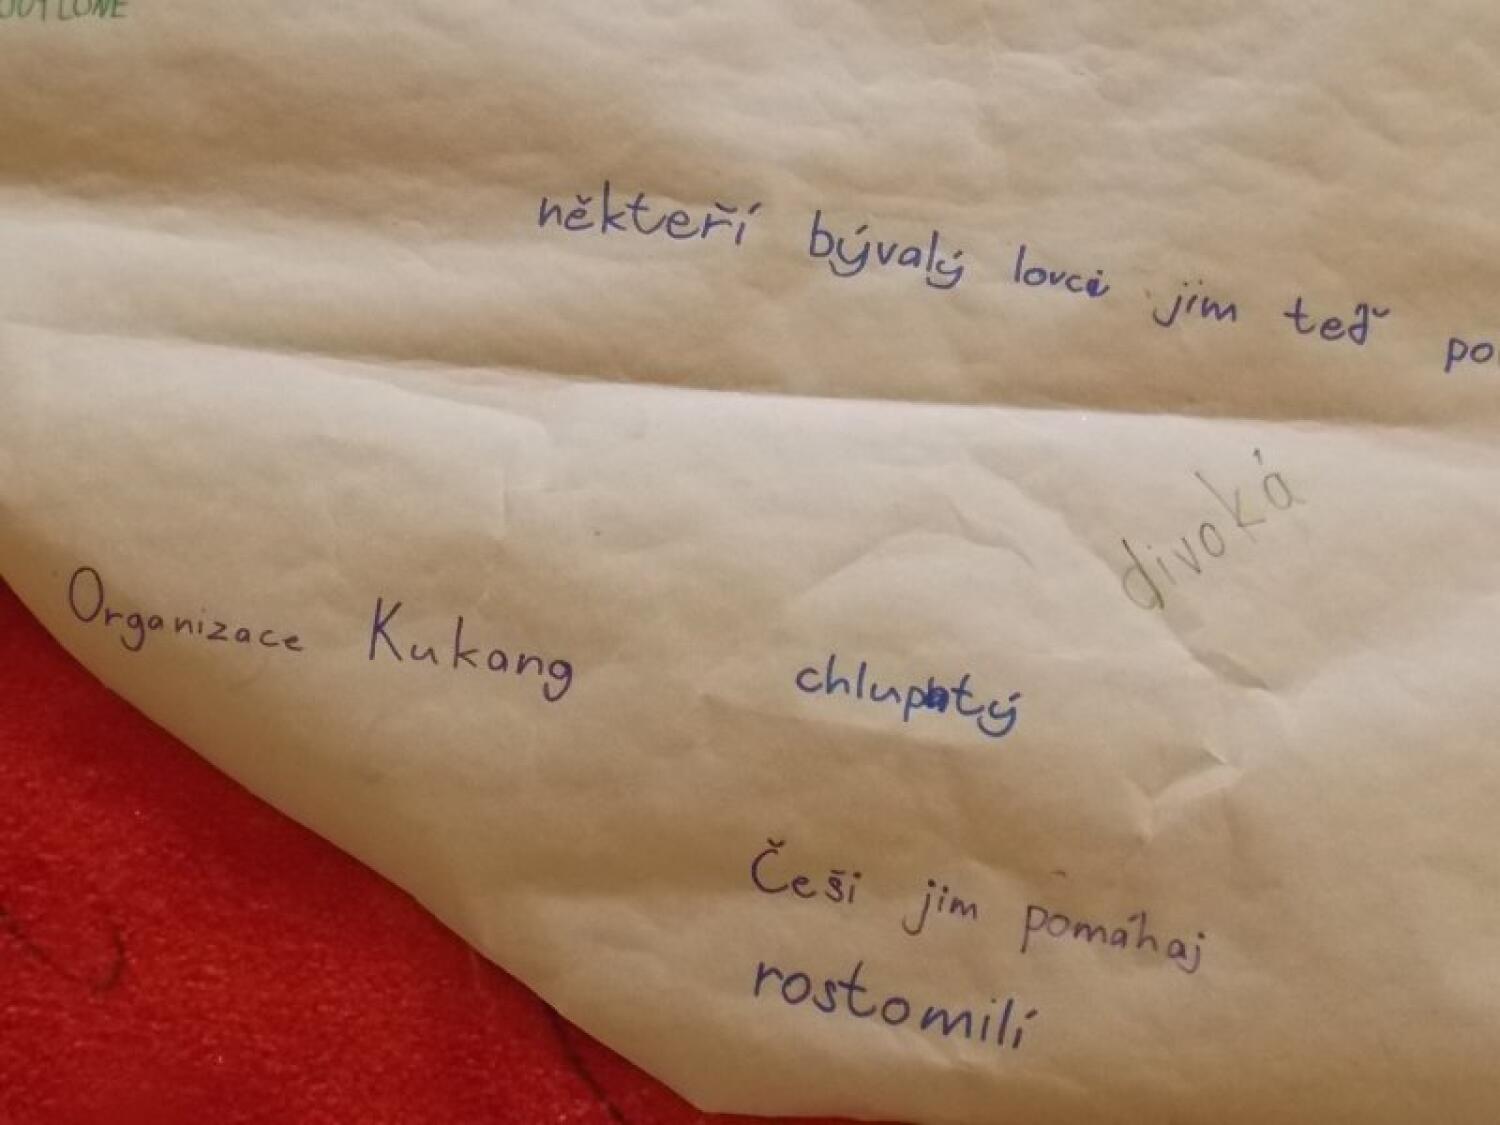 někteří bývalý lovci jim teď
divoká
Organizace Kukang
chlupatý
Češi jim pomáhaj
rostomilí